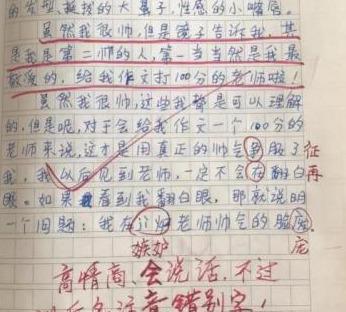 的发型，挺拔的大鼻子，性感的小嘴唇。
虽然我很帅，但是镜子告诉我，其
是我是第二帅的人，第一当当然是我最
敬爱的，给我作文打100分的老师啦！
虽然我很帅，这些我都是可以理解
的，但是呢，对于会给我作文一个100分的
老师来说，这才是用真正的帅气争服了征
我，我以后见到老师，一定不会在翻白再
眼。如果我看到我翻白眼，那就说明
一个问题：我在计护老师帅气的脸庞。
嫉妒 庞
高情商，会说话，不过
注意错别字！